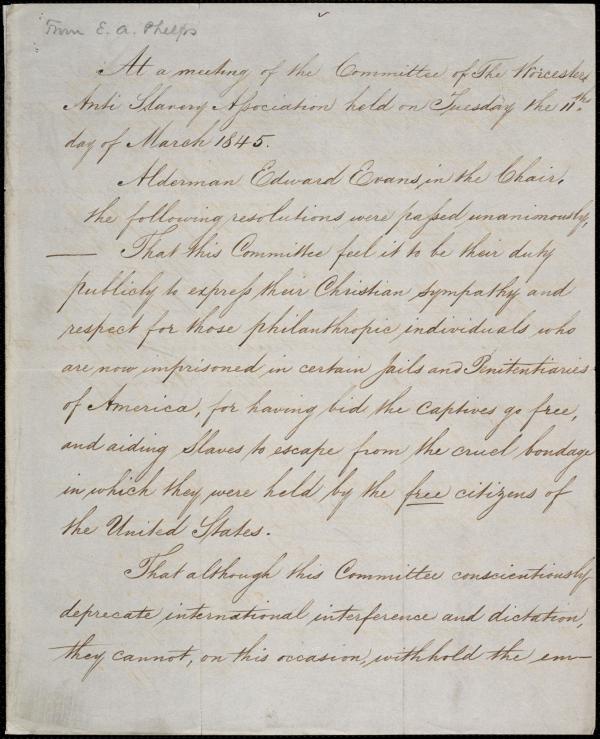 From E. A. Phelps
At a meeting of the Committee of The Worcester
Anti Slavery Association held on Tuesday the 11th
day of March 1845.
Alderman Edward Evans, in the Chair,
the following resolutions were passed unanimously,
— That this Committee feel it to be their duty
publicly to express their Christian sympathy and
respect for those philanthropic individuals who
are now imprisoned in certain Jails and Penitentiaries
of America, for having bid the Captives go free,
and aiding Slaves to escape from the cruel bondage
in which they were held by the free citizens of
the United States.
That although this Committee conscientiously
deprecate international interference and dictation,
they cannot, on this occasion, withhold the em—